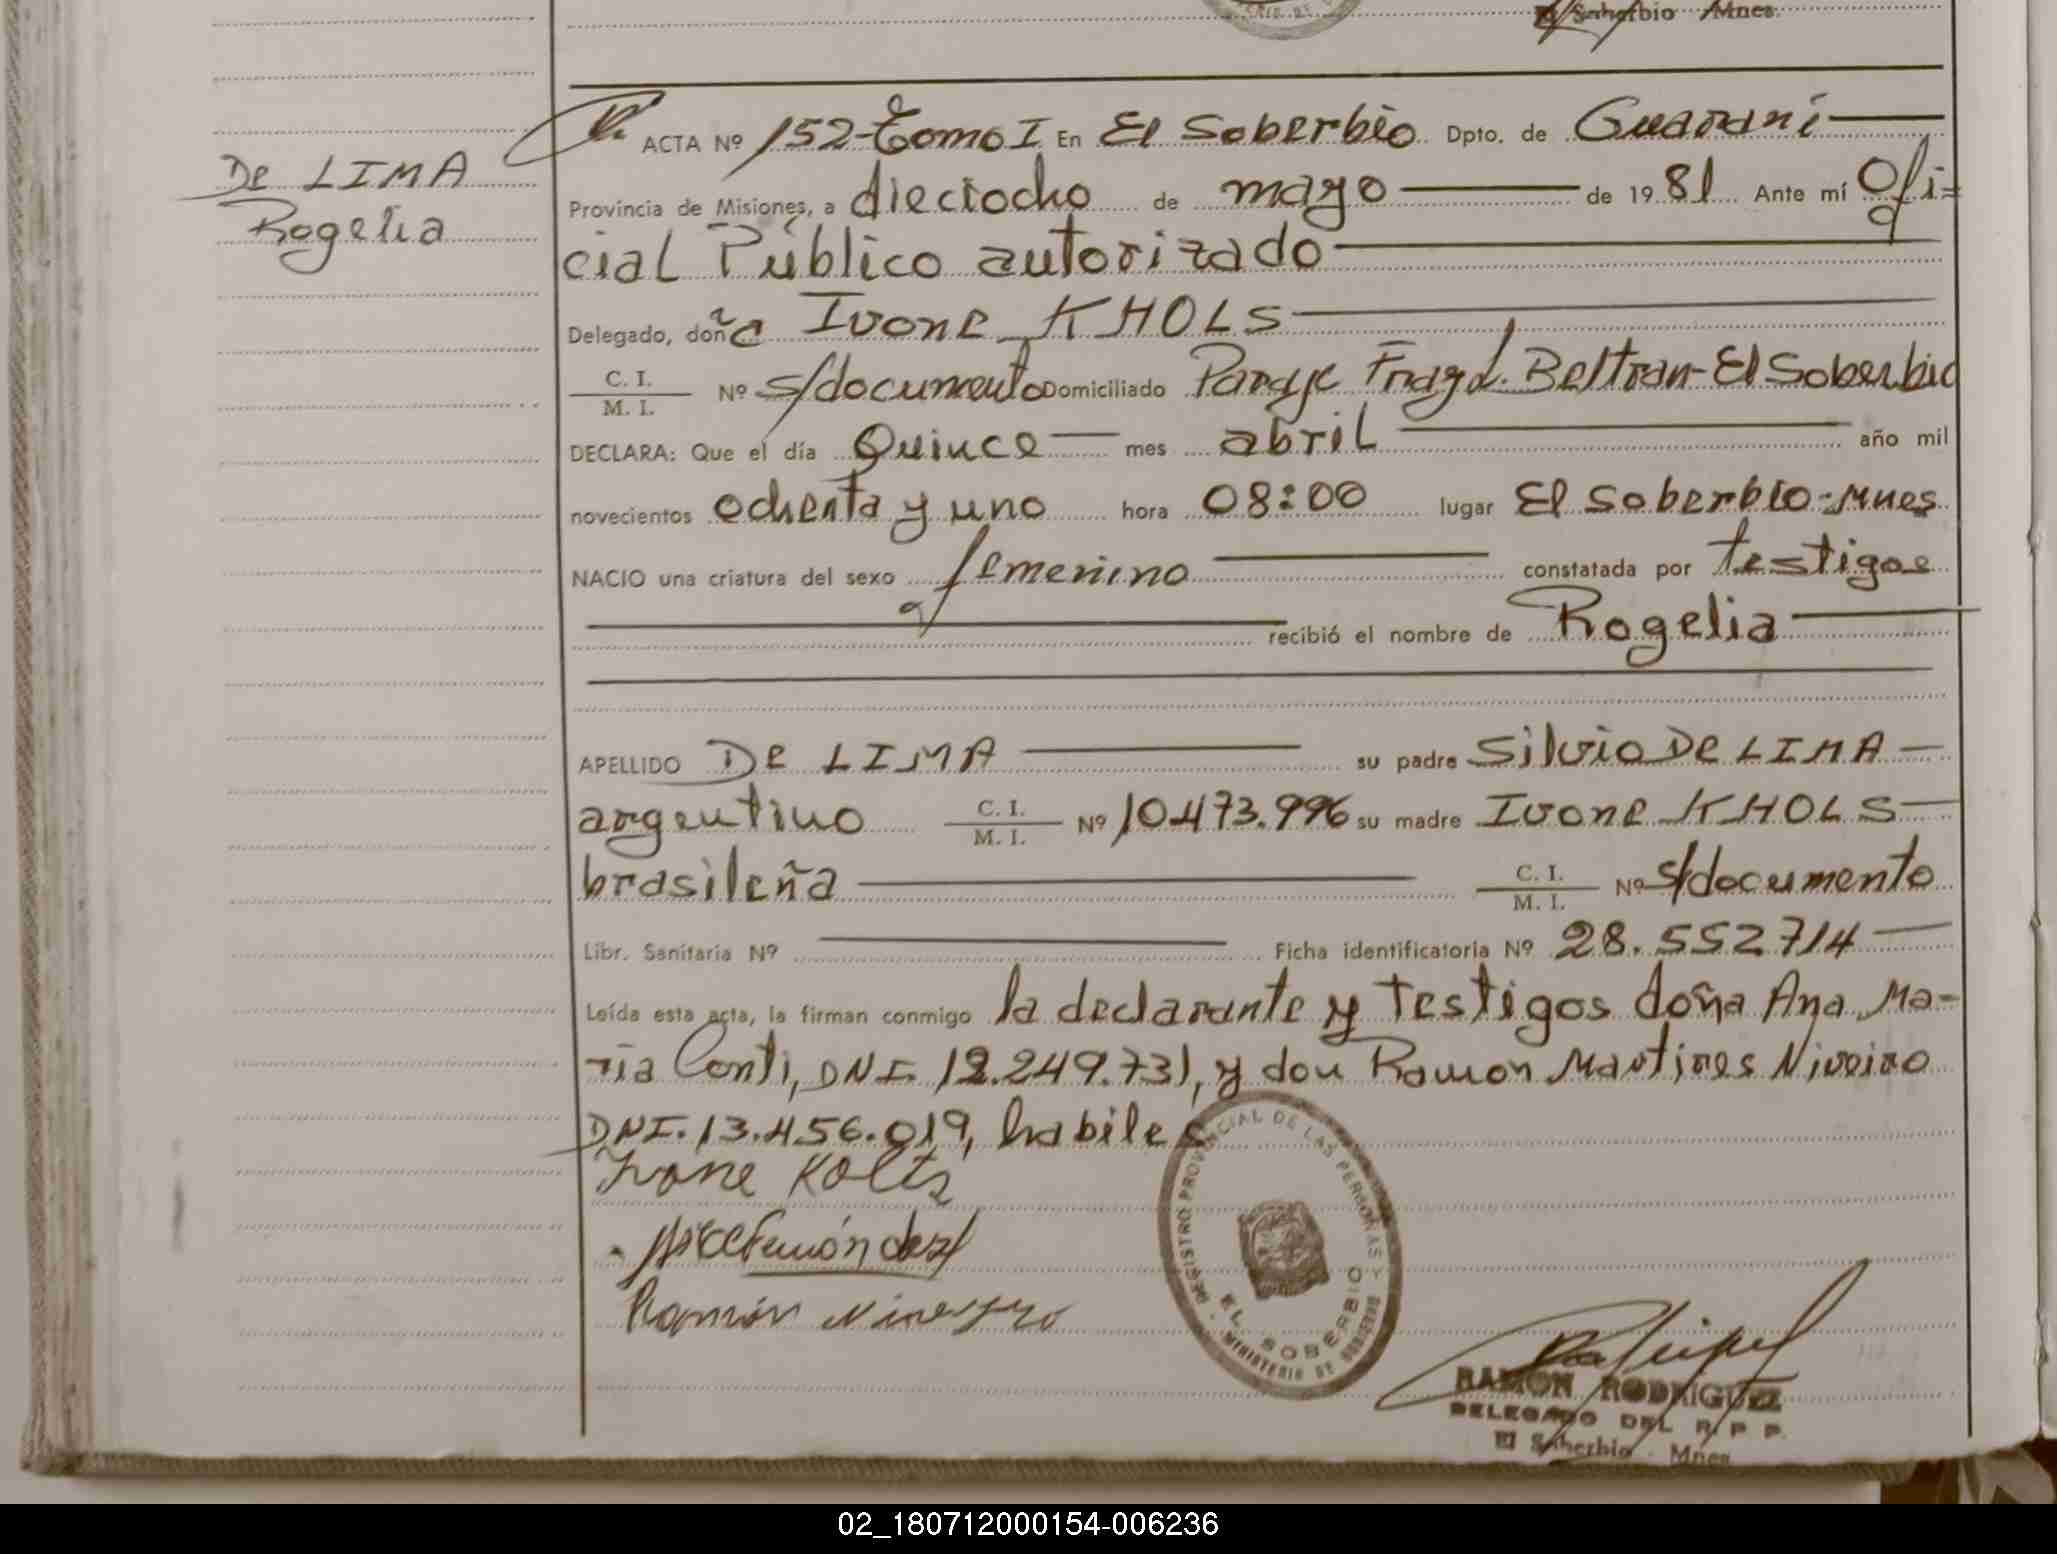 El Soberbio Mnes.
De LIMA
Rogelia
ACTA Nº 152-Tomo I En El Soberbio Dpto. de Guaraní
Provincia de Misiones, a dieciocho de mayo de 19 81 Ante mí Ofi=
cial Público autorizado
Delegado, doña Ivone KHOLS
C. I. / M. I. Nº s/documento Domiciliado Paraje Fragd. Beltran-El Soberbio
DECLARA: Que el día Quince mes abril año mil
novecientos ochenta y uno hora 08:00 lugar El Soberbio-Mnes
NACIO una criatura del sexo femenino constatada por testigos
recibió el nombre de Rogelia
APELLIDO De LIMA su padre Silvio De LIMA
argentino C. I. / M. I. Nº 10.473.996 su madre Ivone KHOLS
brasileña C. I. / M. I. Nº s/documento
Libr. Sanitaria Nº Ficha identificatoria Nº 28.552714
Leída esta acta, la firman conmigo la declarante y Testigos doña Ana Ma-
ria Conti, DNI. 12.249.731, y don Ramon Martires Niveiro
DNI. 13.456.019, habiles
Ivone Kolts
Ramón
REGISTRO PROVINCIAL DE LAS PERSONAS
EL SOBERBIO
MINISTERIO DE GOBIERNO
RAMON RODRIGUEZ
DELEGADO DEL R. P. P.
El Soberbio - Mnes
02_180712000154-006236